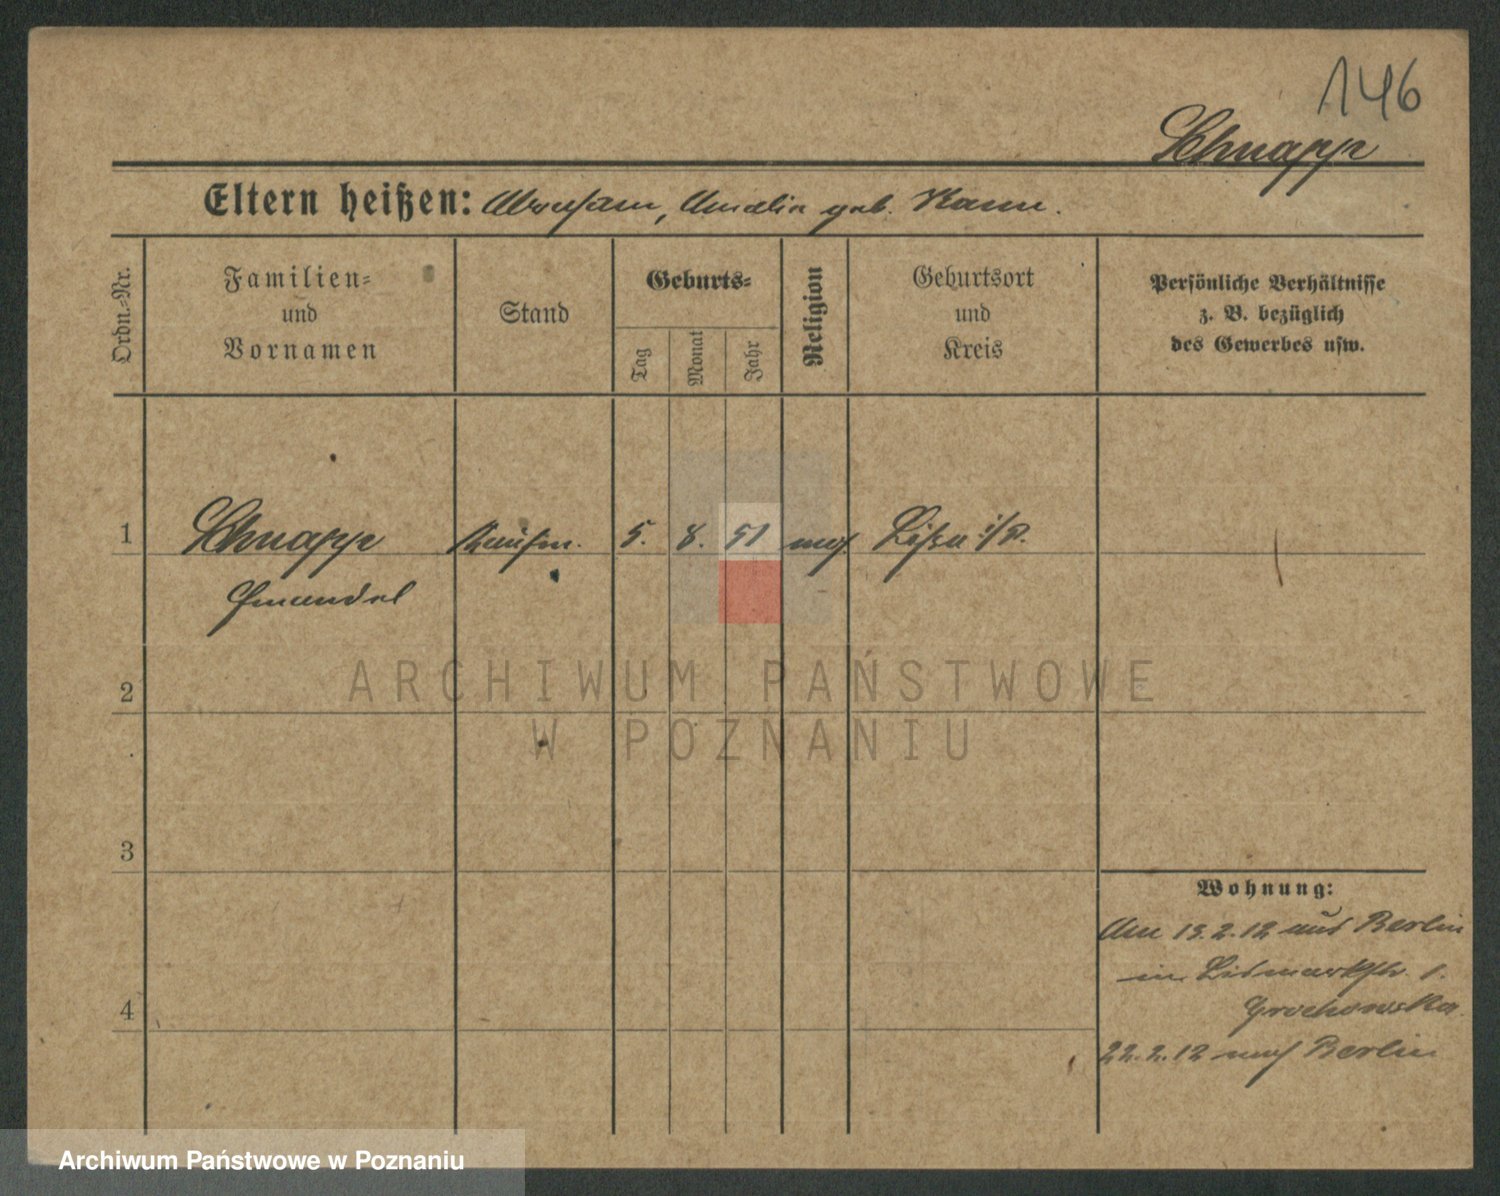 146
Schnapp
Eltern heißen: Abraham, Amalia geb. Kann.
Ordn.-Nr.
Familien-
und
Vornamen
Stand
Geburts-
Tag
Monat
Jahr
Religion
Geburtsort
und
Kreis
Persönliche Verhältnisse
z. B. bezüglich
des Gewerbes usw.
1 Schnapp Kaufm. 5. 8. 51 mos Lissa i/P.
Emanuel
2
3
4
Wohnung:
Am 19.2.12 aus Berlin
in Bismarckstr. 1.
Grochowska.
22.2.12 nach Berlin
ARCHIWUM PAŃSTWOWE
W POZNANIU
Archiwum Państwowe w Poznaniu